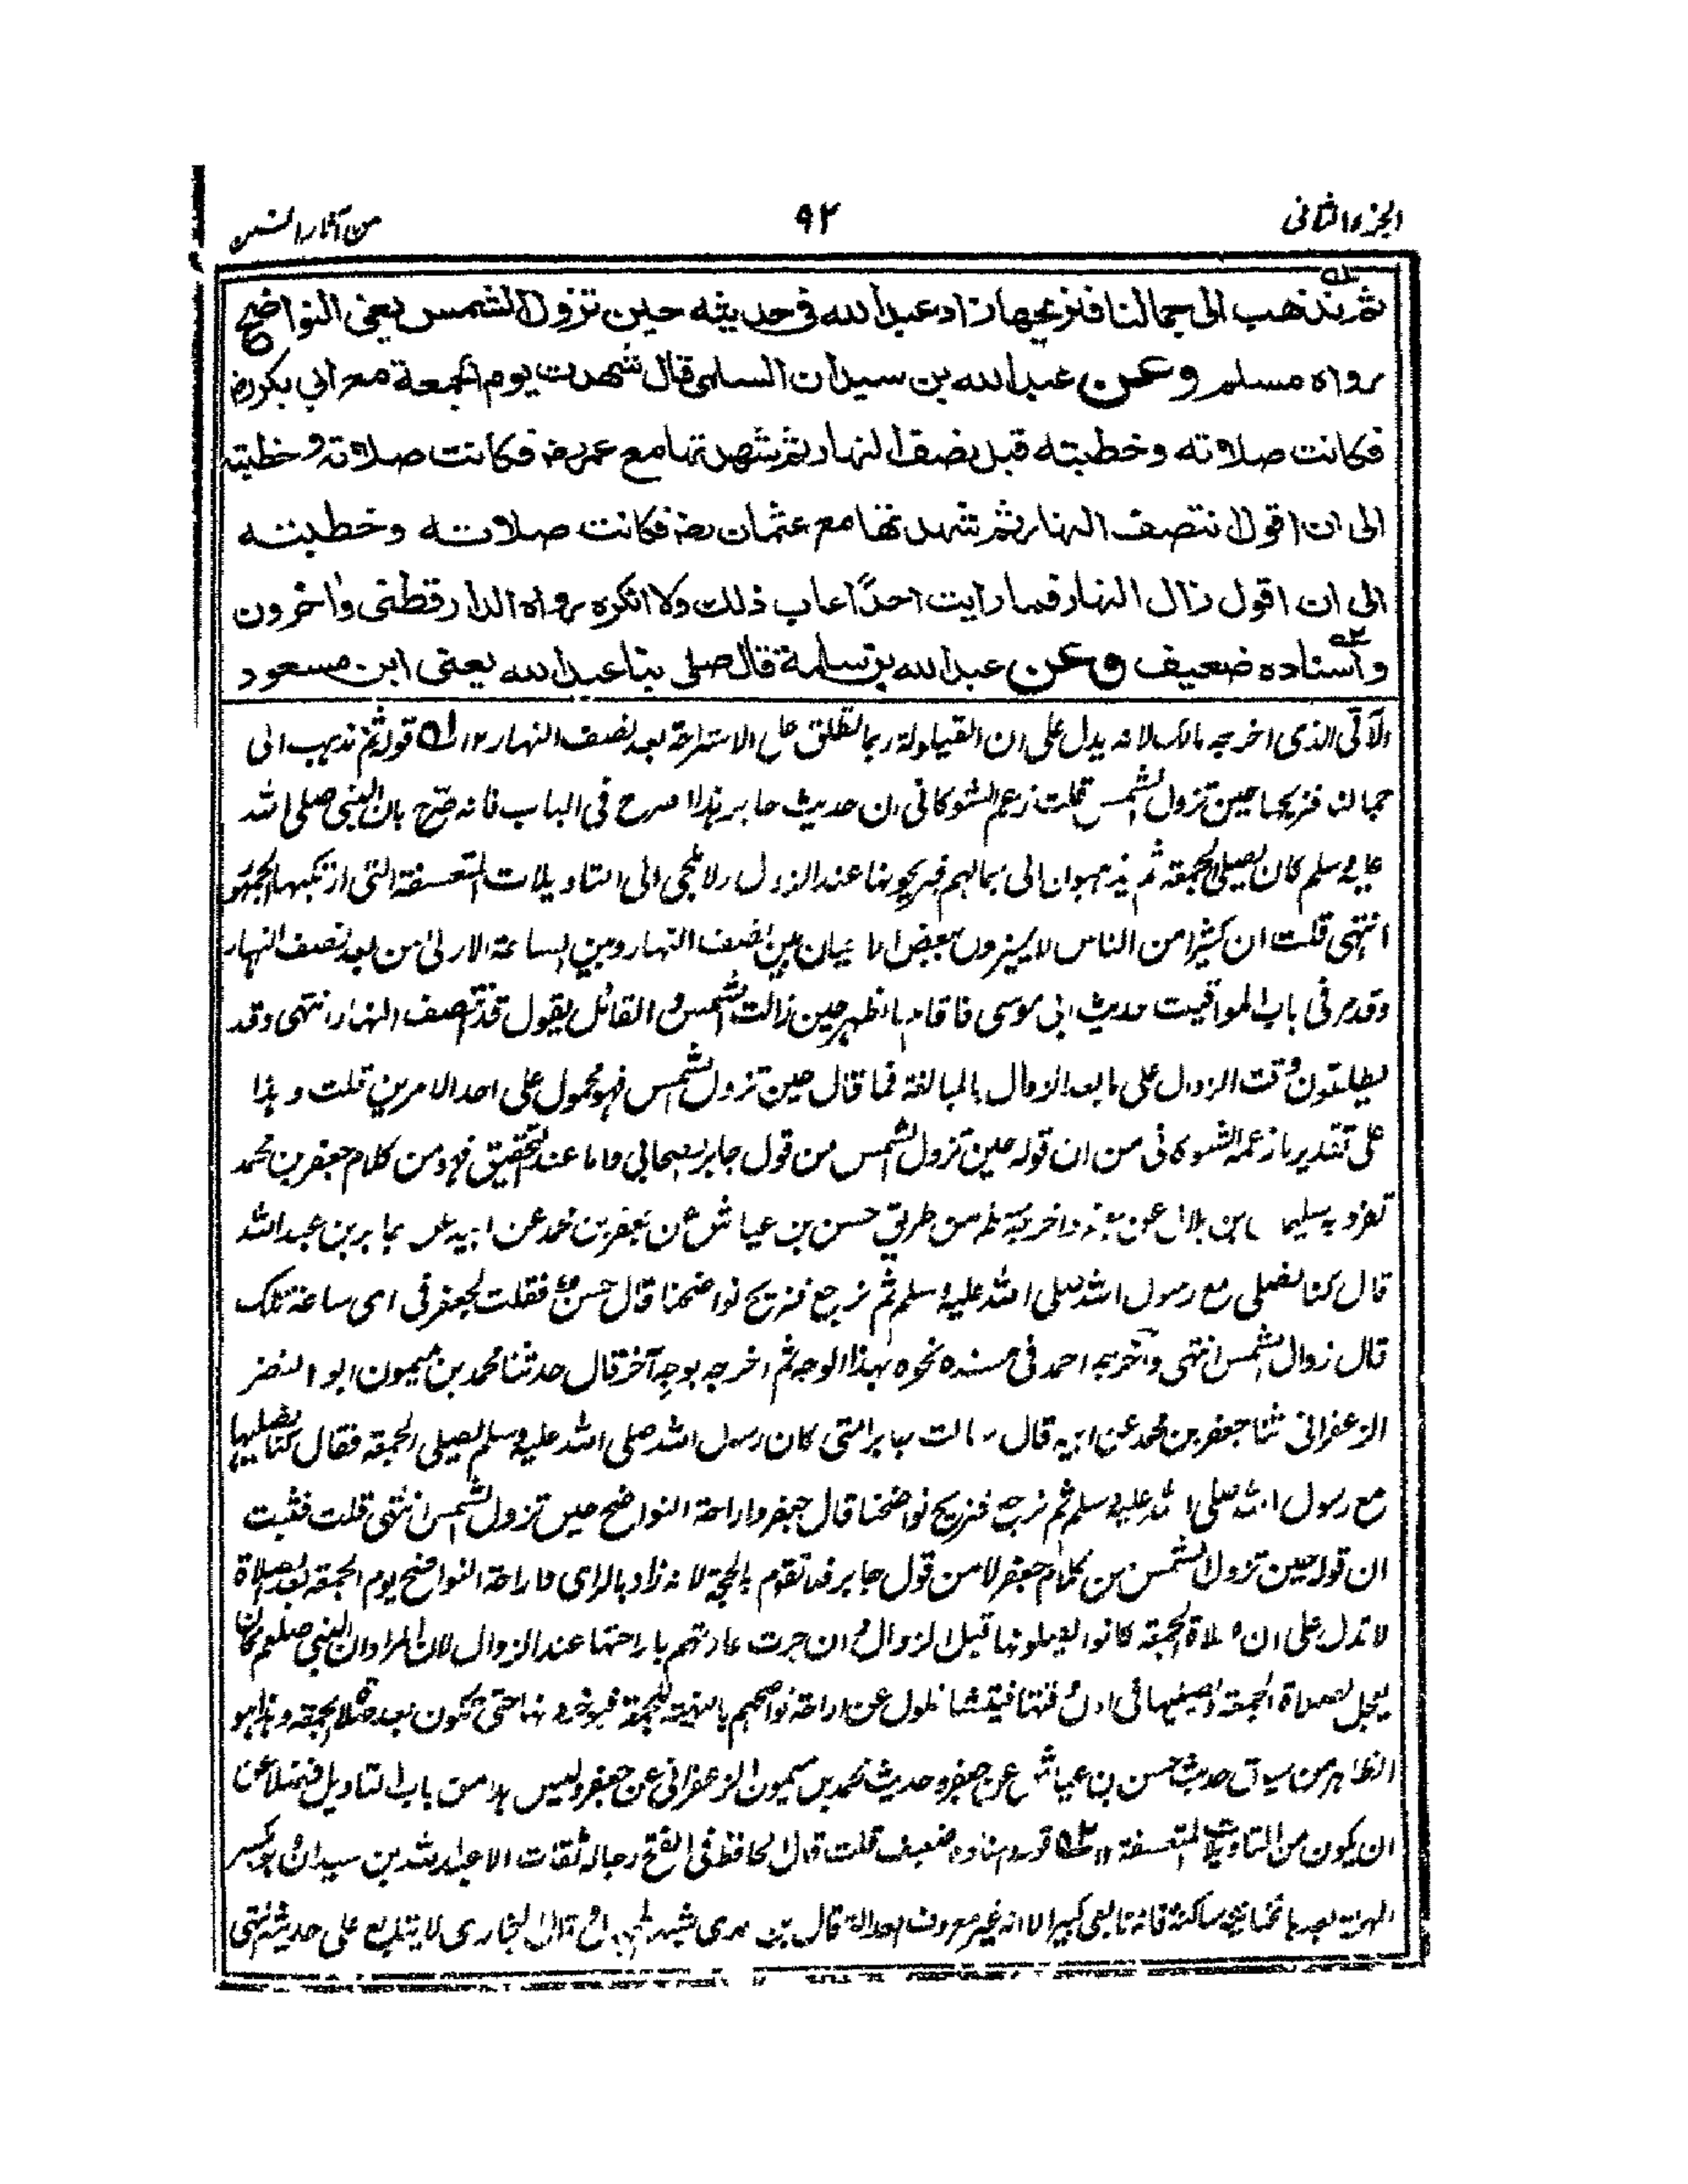 الجزء الثانی
٩٢
من آثار السنن
ثم نذهب الی جمالنا فنریحها زاد عبد الله فی حدیثه حین تزول الشمس یعنی النواضح
رواه مسلم وعن عبد الله بن سیدان السلمی قال شهدت یوم الجمعة مع ابی بکر رض
فکانت صلاته وخطبته قبل نصف النهار ثم شهدتها مع عمر رض فکانت صلاته وخطبته
الی ان اقول انتصف النهار ثم شهدتها مع عثمان رض فکانت صلاته وخطبته
الی ان اقول زال النهار فما رایت احدًا عاب ذلك ولا انکره رواه الدارقطنی واخرون
واسناده ضعیف وعن عبد الله بن سلمة قال صلی بنا عبد الله یعنی ابن مسعود
الآتی الذی اخرجه مالک لانه یدل علی ان القیلولة ربما تطلق علی الاستراحة بعد نصف النهار ١٢ قوله ثم نذهب الی
جمالنا فنریحها حین تزول الشمس قلت زعم الشوکانی ان حدیث جابر هذا صرح فی الباب فانه صرح بان النبی صلی الله
علیه وسلم کان یصلی الجمعة ثم یذهبون الی جمالهم فیریحونها عند الزوال ولا ملجی الی التاویلات المتعسفة التی ارتکبها الجمهور
انتهی قلت ان کثیرا من الناس لا یمیزون بعض الاحیان بین نصف النهار وبین الساعة الاولی من بعد نصف النهار
وقد مر فی باب المواقیت حدیث ابی موسی فاقام بالظهر حین زالت الشمس والقائل یقول قد انتصف النهار انتهی وقد
یطلقون وقت الزوال علی ما بعد الزوال بالمبالغة فما قال حین تزول الشمس فهو محمول علی احد الامرین قلت وهذا
علی تقدیر ما زعمه الشوکانی من ان قوله حین تزول الشمس من قول جابر الصحابی واما عند التحقیق فهو من کلام جعفر بن محمد
تفرد به سلیمان بن بلال عن جعفر واخرجه مسلم من طریق حسن بن عیاش عن جعفر بن محمد عن ابیه عن جابر بن عبد الله
قال کنا نصلی مع رسول الله صلی الله علیه وسلم ثم نرجع فنریح نواضحنا قال حسن فقلت لجعفر فی ای ساعة تلک
قال زوال الشمس انتهی واخرجه احمد فی مسنده نحوه بهذا الوجه ثم اخرجه بوجه آخر قال حدثنا محمد بن میمون ابو النضر
الزعفرانی ثنا جعفر بن محمد عن ابیه قال سالت جابرا متی کان رسول الله صلی الله علیه وسلم یصلی الجمعة فقال کنا نصلیها
مع رسول الله صلی الله علیه وسلم ثم نرجع فنریح نواضحنا قال جعفر واراحة النواضح حین تزول الشمس انتهی قلت فثبت
ان قوله حین تزول الشمس من کلام جعفر لا من قول جابر فما تقوم به الحجة لانه زاد بالرای واراحة النواضح یوم الجمعة بعد الصلاة
لا تدل علی ان صلاة الجمعة کانوا یصلونها قبل الزوال وان جرت عادتهم باراحتها عند الزوال لان المراد ان النبی صلعم کان
یعجل لصلاة الجمعة ویصلیها فی اول وقتها عن اراحة نواضحهم بالتهیة للجمعة فیوخرونها حتی تکون بعد صلاة الجمعة وهذا هو
الظاهر من سیاق حدیث حسن بن عیاش عن جعفر وحدیث محمد بن میمون الزعفرانی عن جعفر ولیس هذا من باب التاویل فضلا عن
ان یکون من التاویلات المتعسفة ١٢ قوله واسناده ضعیف قلت قال الحافظ فی الفتح رجاله ثقات الا عبد الله بن سیدان وهو بکسر
المهملة بعدها تحتانیة ساکنة فانه تابعی کبیر الا انه غیر معروف العدالة قال بن عدی شبه المجهول وقال البخاری لا یتابع علی حدیثه انتهی